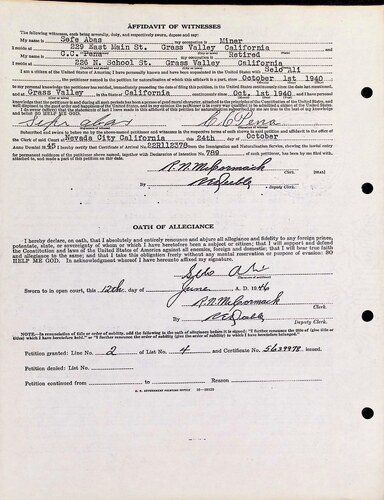 AFFIDAVIT OF WITNESSES
The following witnesses, each being severally, duly, and respectively sworn, depose and say:
My name is Sefe Abas, my occupation is Miner
I reside at 229 East Main St. Grass Valley California
My name is C.C. Pena, my occupation is Retired
I reside at 226 N. School St. Grass Valley California
I am a citizen of the United States of America; I have personally known and have been acquainted in the United States with Selo Ali
, the petitioner named in the petition for naturalization of which this affidavit is a part, since October 1st 1940
to my personal knowledge the petitioner has resided, immediately preceding the date of filing this petition, in the United States continuously since the date last mentioned,
and at Grass Valley, in the State of California continuously since Oct. 1st 1940, and I have personal
knowledge that the petitioner is and during all such periods has been a person of good moral character, attached to the principles of the Constitution of the United States, and
well disposed to the good order and happiness of the United States, and in my opinion the petitioner is in every way qualified to be admitted a citizen of the United States.
I do swear that the statements of fact I have made in this affidavit of this petition for naturalization subscribed by me are true to the best of my knowledge and
belief: SO HELP ME GOD.
Sefe abas C C Pena
Subscribed and sworn to before me by the above-named petitioner and witnesses in the respective forms of oath shown in said petition and affidavit in the office of
the Clerk of said Court at Nevada City California this 24th day of October
Anno Domini 19 45 I hereby certify that Certificate of Arrival No. 22R112378 from the Immigration and Naturalization Service, showing the lawful entry
for permanent residence of the petitioner above named, together with Declaration of Intention No. 789 of such petitioner, has been by me filed with,
attached to, and made a part of this petition on this date.
R.N. McCormack
Clerk.
[SEAL]
By
Deputy Clerk.
OATH OF ALLEGIANCE
I hereby declare, on oath, that I absolutely and entirely renounce and abjure all allegiance and fidelity to any foreign prince,
potentate, state, or sovereignty of whom or which I have heretofore been a subject or citizen; that I will support and defend
the Constitution and laws of the United States of America against all enemies, foreign and domestic; that I will bear true faith
and allegiance to the same; and that I take this obligation freely without any mental reservation or purpose of evasion: SO
HELP ME GOD. In acknowledgment whereof I have hereunto affixed my signature.
Sworn to in open court, this 12th day of June, A. D. 1946
R.N. McCormack
Clerk.
By
Deputy Clerk.
NOTE.—In renunciation of title or order of nobility, add the following to the oath of allegiance before it is signed: "I further renounce the title of (give title or
titles) which I have heretofore held," or "I further renounce the order of nobility (give the order of nobility) to which I have heretofore belonged."
Petition granted: Line No. 2 of List No. 4 and Certificate No. 5639978 issued.
Petition denied: List No.
Petition continued from to Reason
U. S. GOVERNMENT PRINTING OFFICE